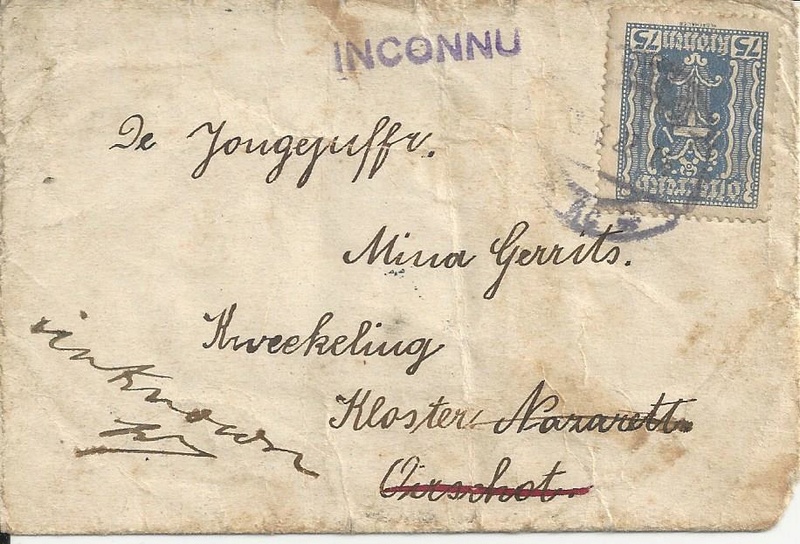 INCONNU
75 Kronen 75
Österreich
De Jongejuffr.
Mina Gerrits.
Kweekeling
Kloster Nazarett.
Oirschot.
unknown